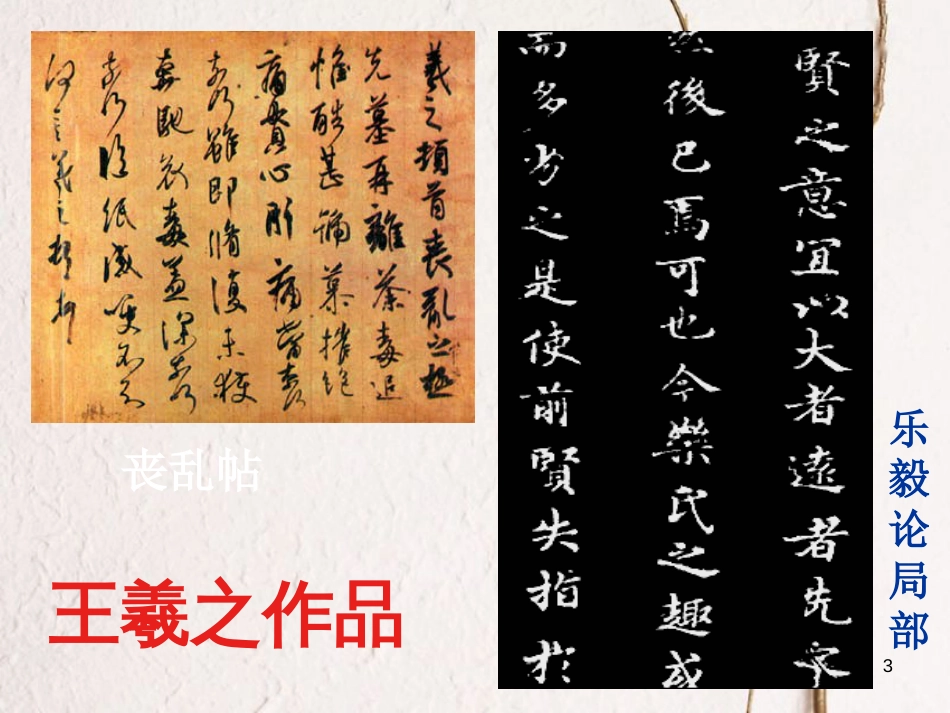 羲之頓首喪亂之極
先墓再離荼毒追
惟酷甚號慕摧絕
痛貫心肝痛當奈何
奈何雖即脩復未獲
奔馳哀毒益深奈何
奈何臨紙感哽不知
何言羲之頓首頓首
丧乱帖
王羲之作品
賢之意冝以大者遠者先
然後已焉可也今樂氏之趣或
而多劣之是使前賢失指於
乐毅论局部
3